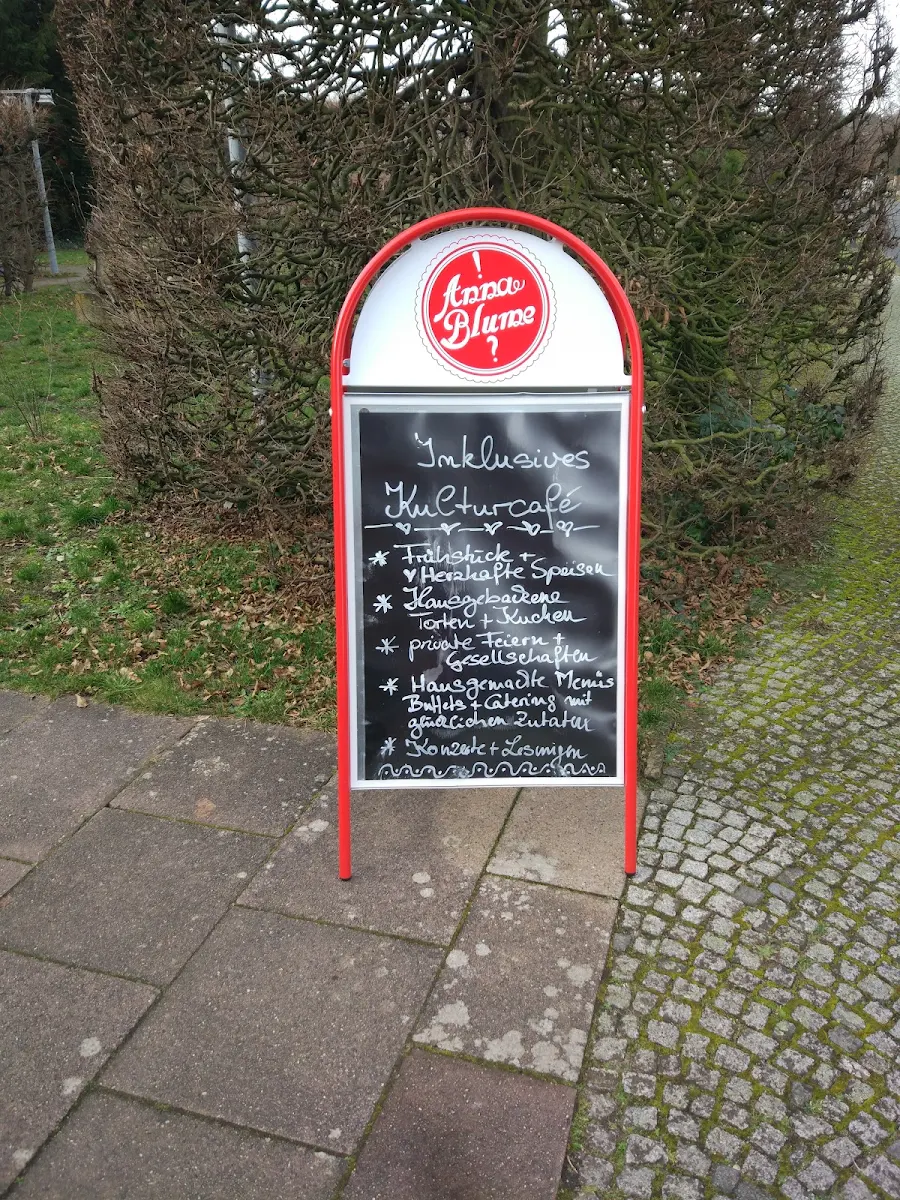 !
Anna
Blume
?
Inklusives
Kulturcafé
* Frühstück +
♥ Herzhafte Speisen
* Hausgebackene
Torten + Kuchen
* private Feiern +
Gesellschaften
* Hausgemachte Menüs
Buffets + Catering mit
glücklichen Zutaten
* Konzerte + Lesungen